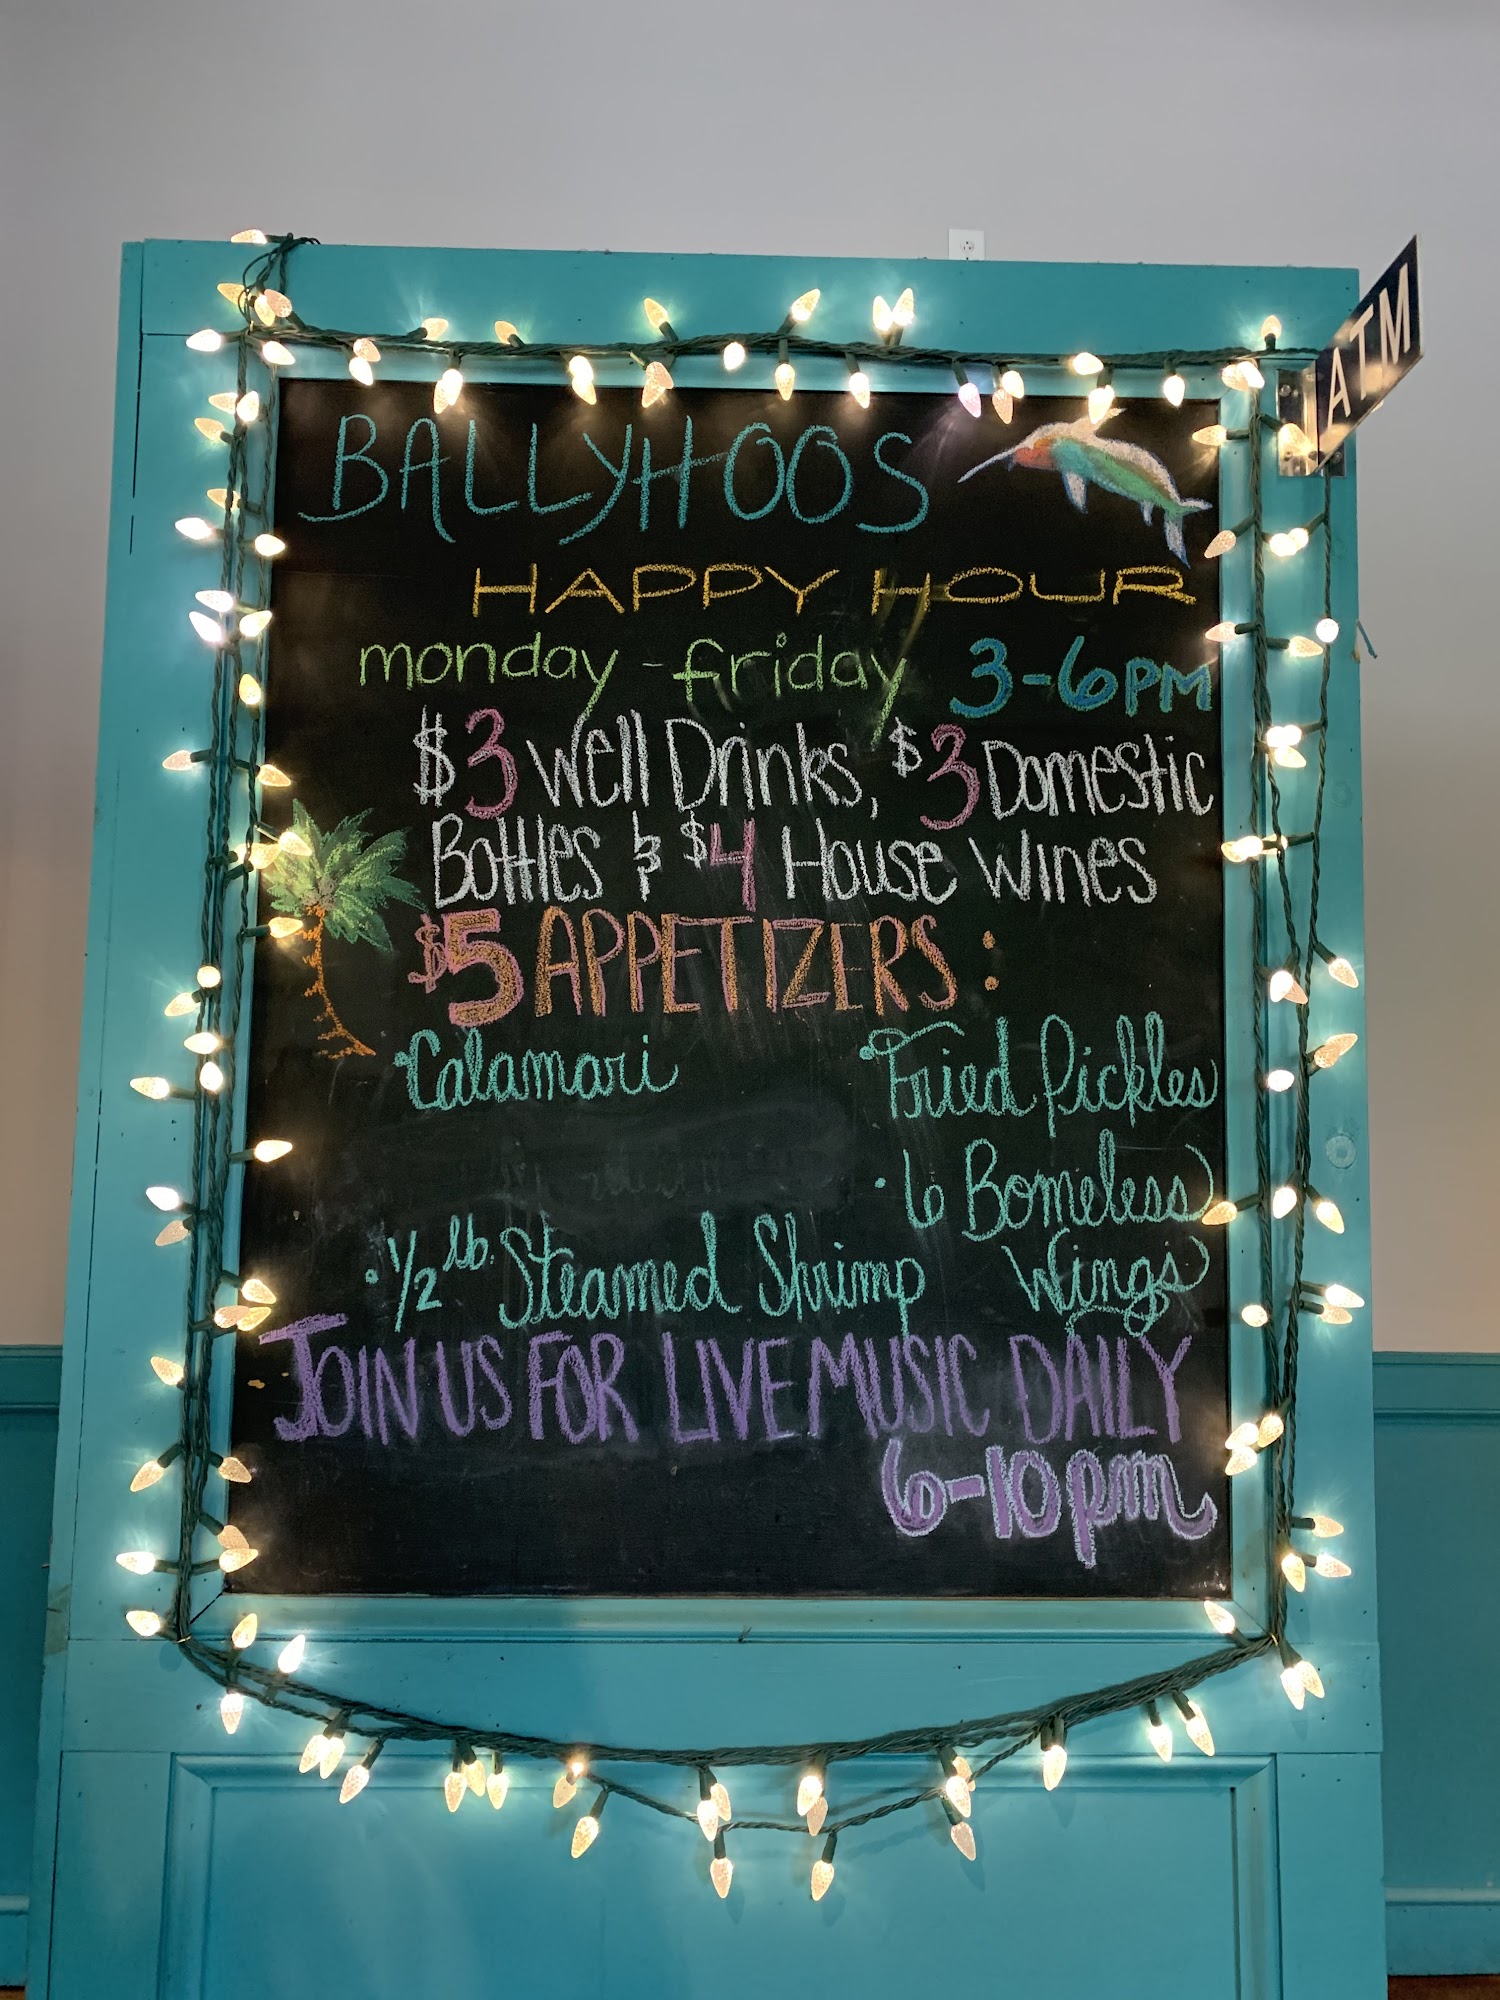 BALLYHOOS
HAPPY HOUR
monday - friday 3-6PM
$3 Well Drinks, $3 Domestic
Bottles & $4 House Wines
$5 APPETIZERS:
• Calamari
• Fried Pickles
• 6 Boneless
Wings
• 1/2 lb. Steamed Shrimp
JOIN US FOR LIVE MUSIC DAILY
6-10pm
ATM